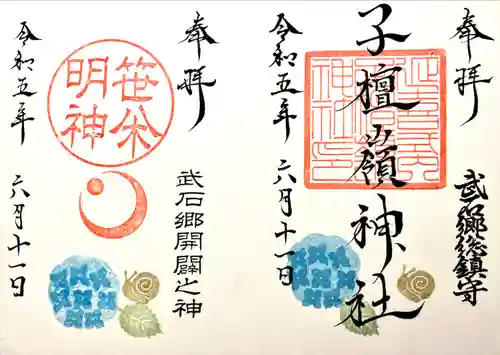 奉拝
武石郷総鎮守
子檀嶺神社
令和五年 六月十一日
奉拝
武石郷開闢之神
笹
明神
令和五年 六月十一日